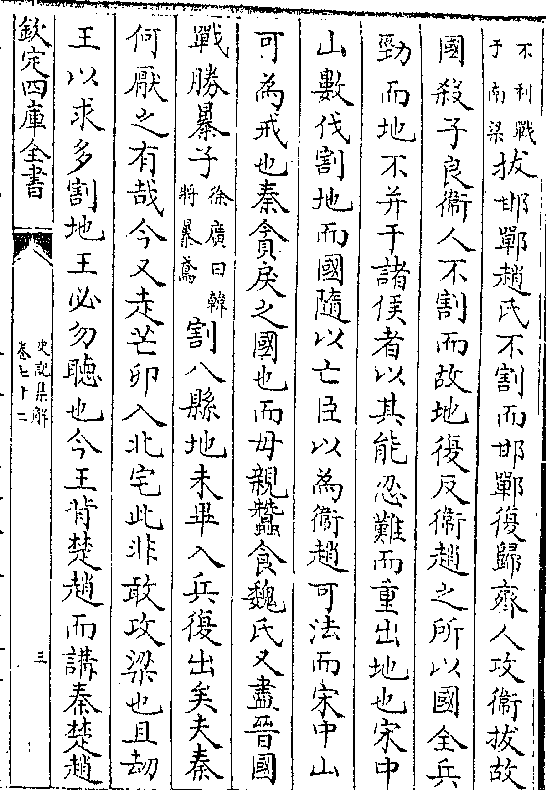 不利戰于南梁拔邯鄲趙氏不割而邯鄲復歸齊人攻衞拔故
國殺子良衞人不割而故地復反衞趙之所以國全兵
勁而地不并于諸侯者以其能忍難而重出地也宋中
山數伐割地而國隨以亡臣以為衞趙可法而宋中山
可為戒也秦貪戾之國也而毋親蠶食魏氏又盡晉國
戰勝暴子徐廣曰韓將暴鳶割八縣地未畢入兵復出矣夫秦
何厭之有哉今又走芒卯入北宅此非敢攻梁也且刧
王以求多割地王必勿聽也今王背楚趙而講秦楚趙
欽定四庫全書
史記集解
卷七十二
三